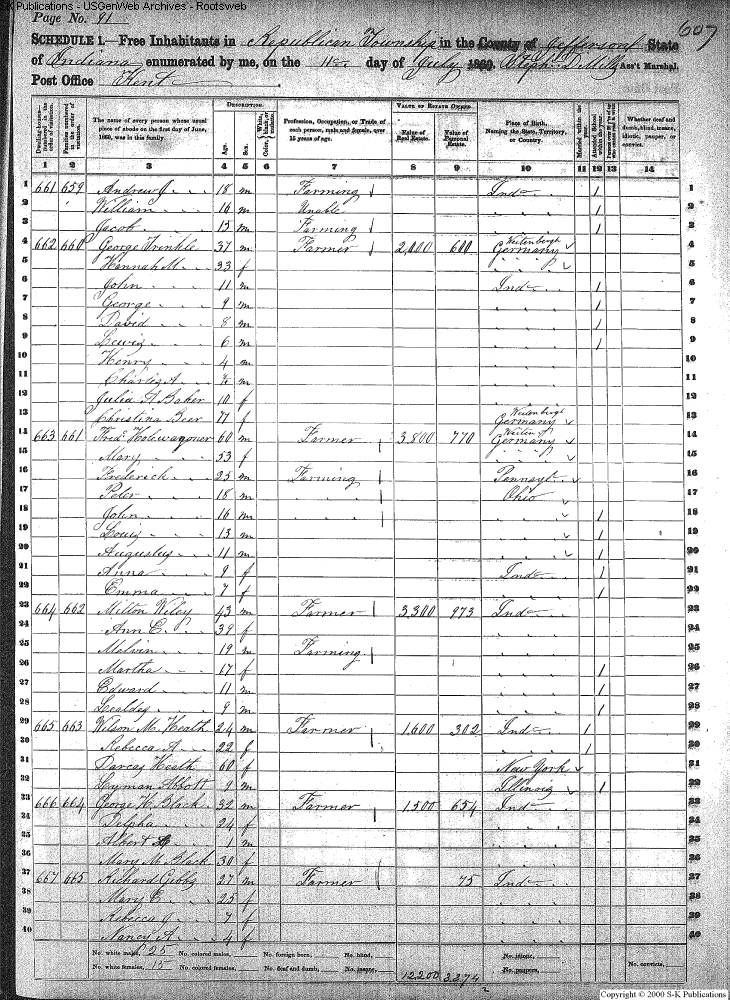 S-K Publications - USGenWeb Archives - Rootsweb
Page No. 91
607
SCHEDULE 1.—Free Inhabitants in Republican Township in the County of Jefferson State
of Indiana enumerated by me, on the 11 day of July 1860. Ass't Marshal.
Post Office Kent
Dwelling-houses—numbered in the order of visitation.
Families numbered in the order of visitation.
The name of every person whose usual place of abode on the first day of June, 1860, was in this family.
DESCRIPTION.
Age.
Sex.
Color, White, black, or mulatto.
Profession, Occupation, or Trade of each person, male and female, over 15 years of age.
VALUE OF ESTATE OWNED.
Value of Real Estate.
Value of Personal Estate.
Place of Birth, Naming the State, Territory, or Country.
Married within the year.
Attended School within the year.
Whether deaf and dumb, blind, insane, idiotic, pauper, or convict.
1 2 3 4 5 6 7 8 9 10 11 12 13 14
1 661 659 Andrew J. 18 m Farming Ind / 1
2 William 16 m Unable / 2
3 Jacob 15 m Farming / 3
4 662 660 George Trinkle 37 m Farmer 2,000 600 Germany 4
5 Hannah M. 33 f 5
6 John 11 m Ind / 6
7 George 9 m / 7
8 David 8 m / 8
9 Lewis 6 m / 9
10 Henry 4 m 10
11 Charles A. m 11
12 Julia A Baker 10 f 12
13 Christina Beer 77 f Germany 13
14 663 661 Fred. 60 m Farmer 3,800 770 Germany 14
15 Mary 53 f 15
16 Frederick 25 m Farming Pennsyl 16
17 Peter 18 m Ohio 17
18 John 16 m / 18
19 Louis 13 m / 19
20 Augustus 11 m / 20
21 Anna 9 f Ind / 21
22 Emma 7 f / 22
23 664 662 Milton Wiley 43 m Farmer 3,300 973 Ind 23
24 Ann E. 39 f 24
25 Melvin 19 m Farming 25
26 Martha 17 f / 26
27 Edward 11 m / 27
28 9 m / 28
29 665 663 Wilson M. Heath 24 m Farmer 1,600 302 Ind / 29
30 Rebecca A. 22 f / 30
31 Darcas Heath 60 f New York 31
32 Lyman Abbott 9 m Illinois / 32
33 666 664 George H. Black 32 m Farmer 1,500 654 Ind 33
34 Delpha 24 f 34
35 Albert 1 m 35
36 Mary M. Black 30 f 36
37 667 665 Richard Gibbs 27 m Farmer 75 Ind 37
38 Mary E. 25 f 38
39 Rebecca J. 7 f 39
40 Nancy A. 4 f 40
No. white males, 25 No. colored males, No. foreign born, No. blind, No. idiotic, No. convicts,
No. white females, 15 No. colored females, No. deaf and dumb, No. insane, 12200 3374 No. paupers,
Copyright © 2000 S-K Publications